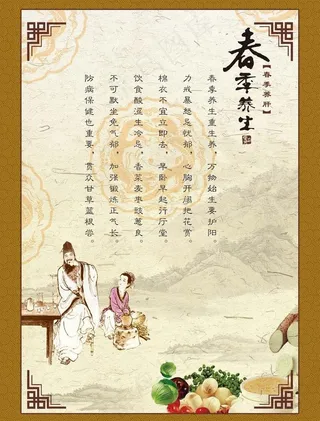 春季养生
【春季养肝】
春季养生重生养，万物始生要护阳。
力戒暴怒忌忧郁，心胸开阔把花赏。
棉衣不宜立即去，早卧早起行厅堂。
饮食酸涩生冷忌，香菜麦枣豉葱良。
不可默坐免气郁，加强锻炼正气长。
防病保健也重要，贯众甘草蓝根尝。